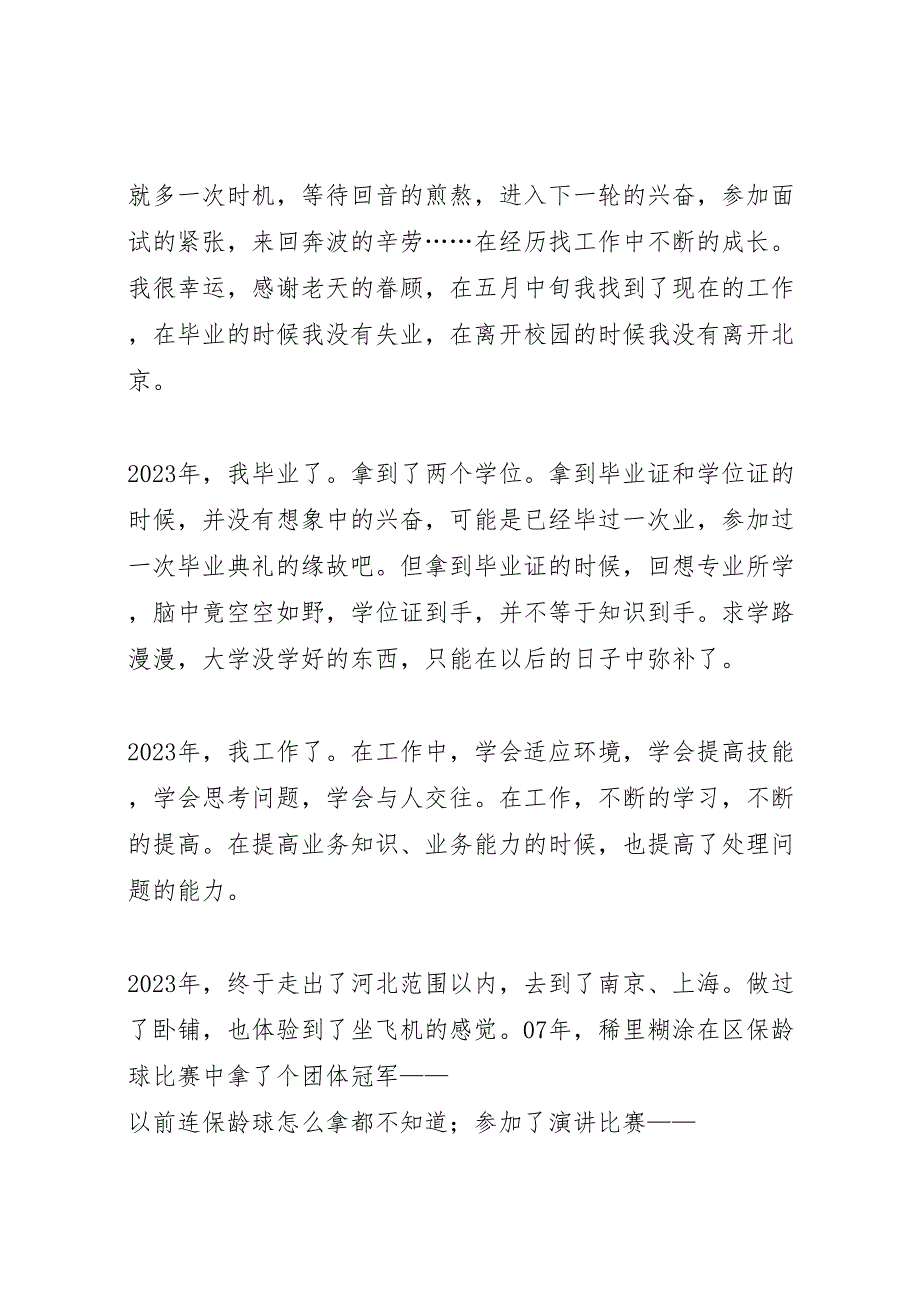 就多一次时机，等待回音的煎熬，进入下一轮的兴奋，参加面
试的紧张，来回奔波的辛劳……在经历找工作中不断的成长。
我很幸运，感谢老天的眷顾，在五月中旬我找到了现在的工作
，在毕业的时候我没有失业，在离开校园的时候我没有离开北
京。
2023年，我毕业了。拿到了两个学位。拿到毕业证和学位证的
时候，并没有想象中的兴奋，可能是已经毕过一次业，参加过
一次毕业典礼的缘故吧。但拿到毕业证的时候，回想专业所学
，脑中竟空空如野，学位证到手，并不等于知识到手。求学路
漫漫，大学没学好的东西，只能在以后的日子中弥补了。
2023年，我工作了。在工作中，学会适应环境，学会提高技能
，学会思考问题，学会与人交往。在工作，不断的学习，不断
的提高。在提高业务知识、业务能力的时候，也提高了处理问
题的能力。
2023年，终于走出了河北范围以内，去到了南京、上海。做过
了卧铺，也体验到了坐飞机的感觉。07年，稀里糊涂在区保龄
球比赛中拿了个团体冠军——
以前连保龄球怎么拿都不知道；参加了演讲比赛——